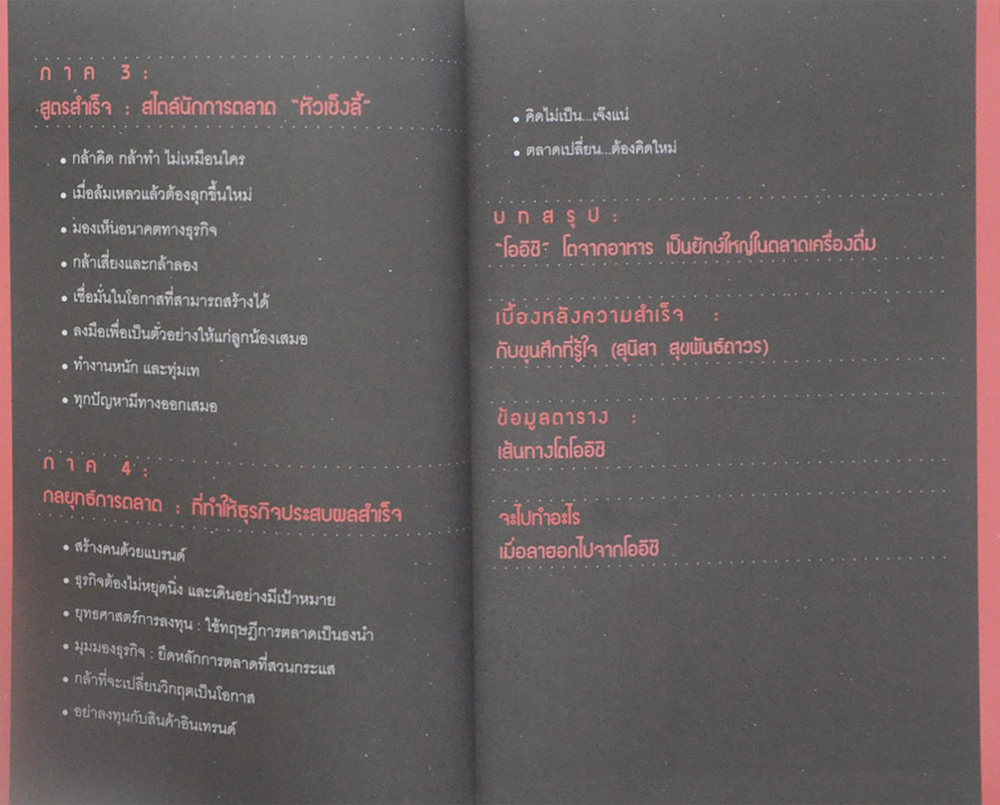 ภาค 3 :
สูตรสำเร็จ : สไตล์นักการตลาด “หัวเช็งลี้”
• กล้าคิด กล้าทำ ไม่เหมือนใคร
• เมื่อล้มเหลวแล้วต้องลุกขึ้นใหม่
• มองเห็นอนาคตทางธุรกิจ
• กล้าเสี่ยงและกล้าลอง
• เชื่อมั่นในโอกาสที่สามารถสร้างได้
• ลงมือเพื่อเป็นตัวอย่างให้แก่ลูกน้องเสมอ
• ทำงานหนัก และทุ่มเท
• ทุกปัญหามีทางออกเสมอ
ภาค 4 :
กลยุทธ์การตลาด : ที่ทำให้ธุรกิจประสบผลสำเร็จ
• สร้างคนด้วยแบรนด์
• ธุรกิจต้องไม่หยุดนิ่ง และเดินอย่างมีเป้าหมาย
• ยุทธศาสตร์การลงทุน : ใช้ทฤษฎีการตลาดเป็นธงนำ
• มุมมองธุรกิจ : ยึดหลักการตลาดที่สวนกระแส
• กล้าที่จะเปลี่ยนวิกฤตเป็นโอกาส
• อย่าลงทุนกับสินค้าอินเทรนด์
• คิดไม่เป็น...เจ๊งแน่
• ตลาดเปลี่ยน...ต้องคิดใหม่
บทสรุป :
“โออิชิ” โตจากอาหาร เป็นยักษ์ใหญ่ในตลาดเครื่องดื่ม
เบื้องหลังความสำเร็จ :
กับขุนศึกที่รู้ใจ (สุนิสา สุขพันธ์ถาวร)
ข้อมูลตาราง :
เส้นทางโตโออิชิ
จะไปทำอะไร
เมื่อลาออกไปจากโออิชิ